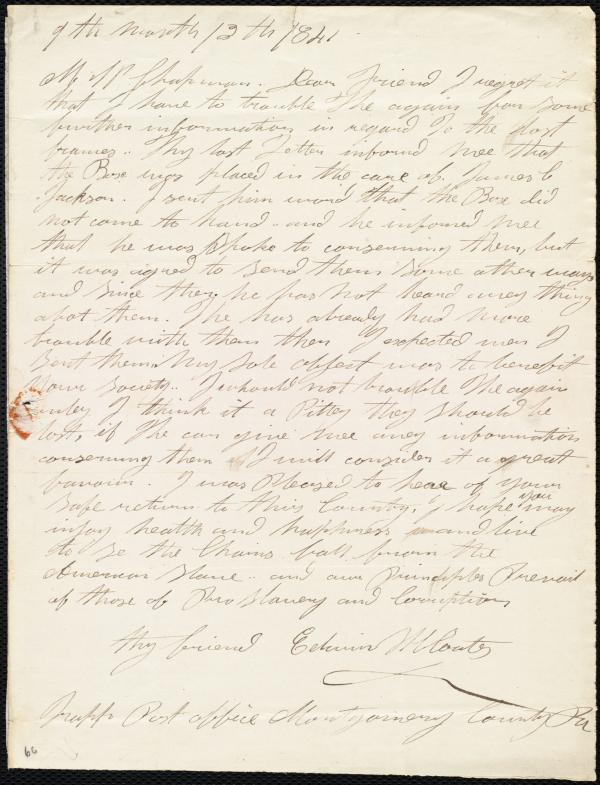 9th month 13th 1841
M W Chapman. Dear Friend I regret it
that I have to trouble The again for some
further information in regard To the lost
frames.. Thy last Letter informd mee that
the Box was placed in the care of James C
Jackson. I sent him word that the Box did
not come to hand.. and he informed mee
that he was spoke to conserning them, but
it was agreed to send them some other ways
and since then he has not heard aney thing
abot them. The has already had more
trouble with them then I expected wen I
sent them. My sole obffest was to benefit
your society.. I whould not trouble The again
unley I think it a Pittey they should be
lost, if The can give mee aney information
conserning them I will consider it a great
favour. I was Pleased to hear of your
safe return to this Country, I hope you may
injoy health and happiness and live
to Se the Chains fall from the
American Slave.. and our Principles Prevail
of those of Pro Slavery and Corruption
thy friend Edwin H Coates
Trapp Post office Montgomery County Pa
66